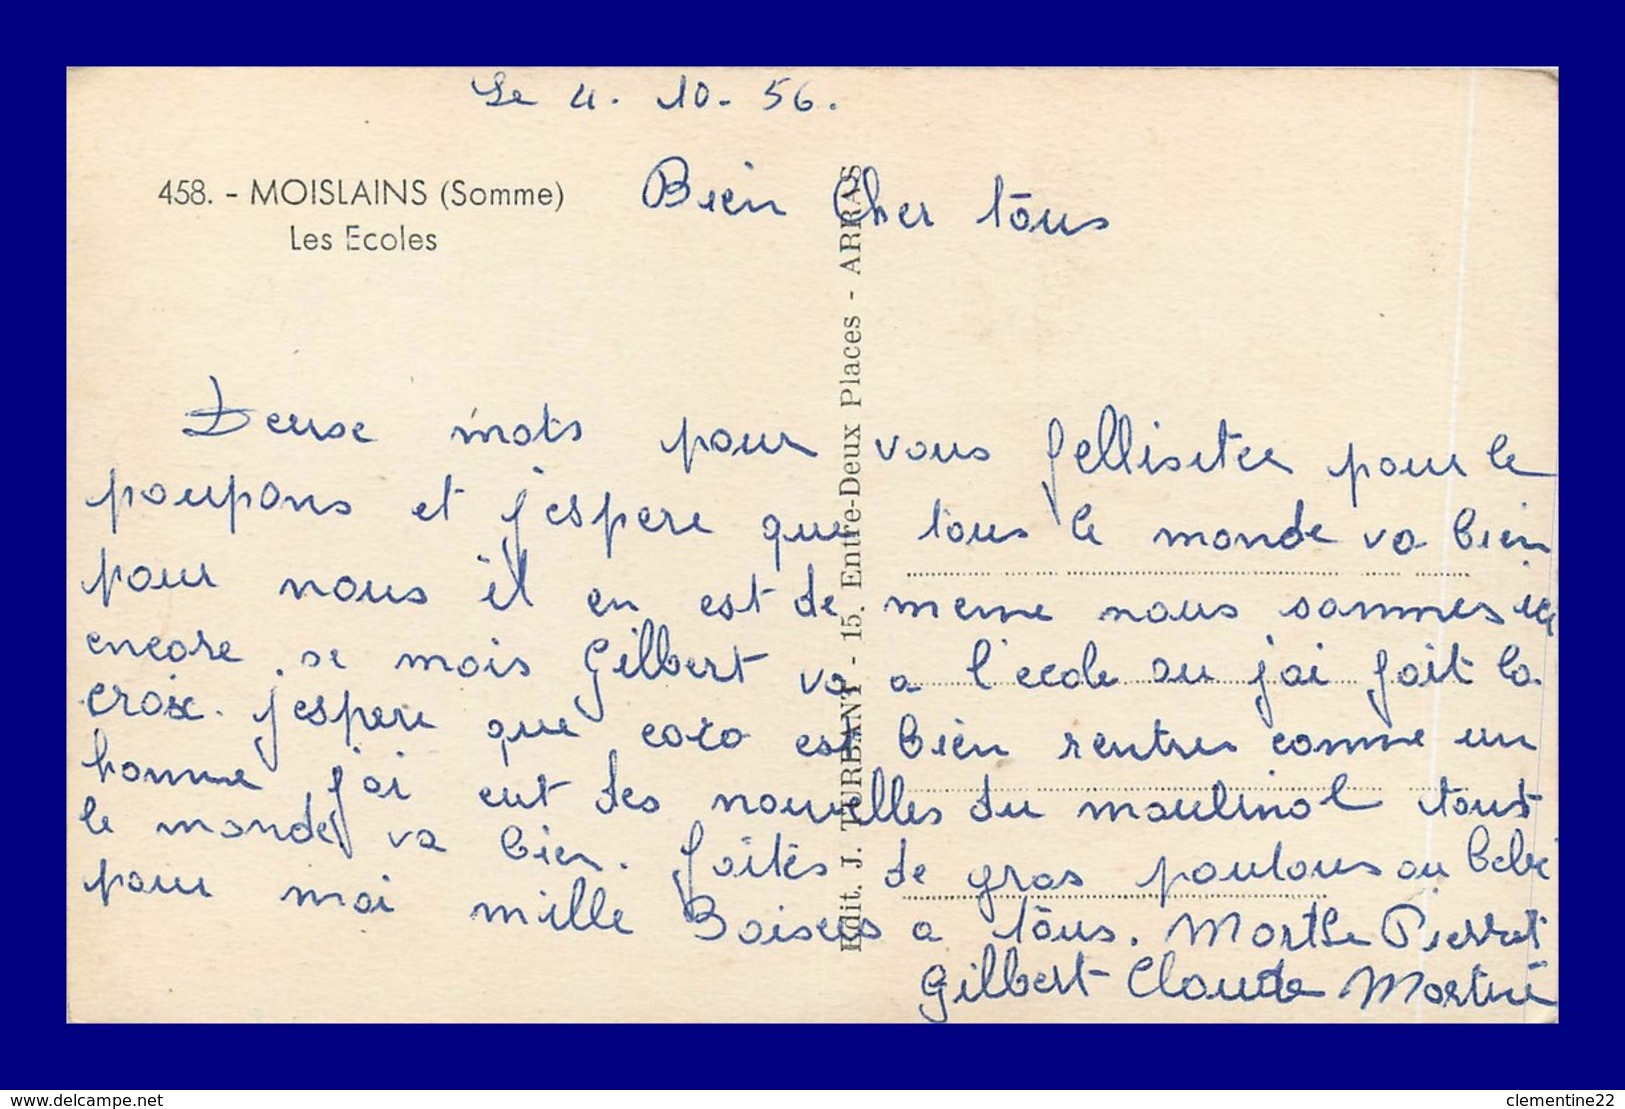 Le 4. 10. 56.
458. - MOISLAINS (Somme)
Les Ecoles
Bien Cher tous
Edit. J. TURBANT - 15, Entre-Deux Places - ARRAS
Deuse mots pour vous fellisiter pour le
poupons et j'espere que tous le monde va bien
pour nous il en est de meme nous sommes ici
encore se mois Gilbert va a l'ecole ou j'ai fait la
croix. j'espere que coco est bien rentrer comme un
homme j'ai eut des nouvelles du moulinol tout
le monde va bien. faites de gros poutous au bebe
pour moi mille Boisers a tous. Marthe Pierrot
Gilbert Claude Martine
www.delcampe.net
clementine22